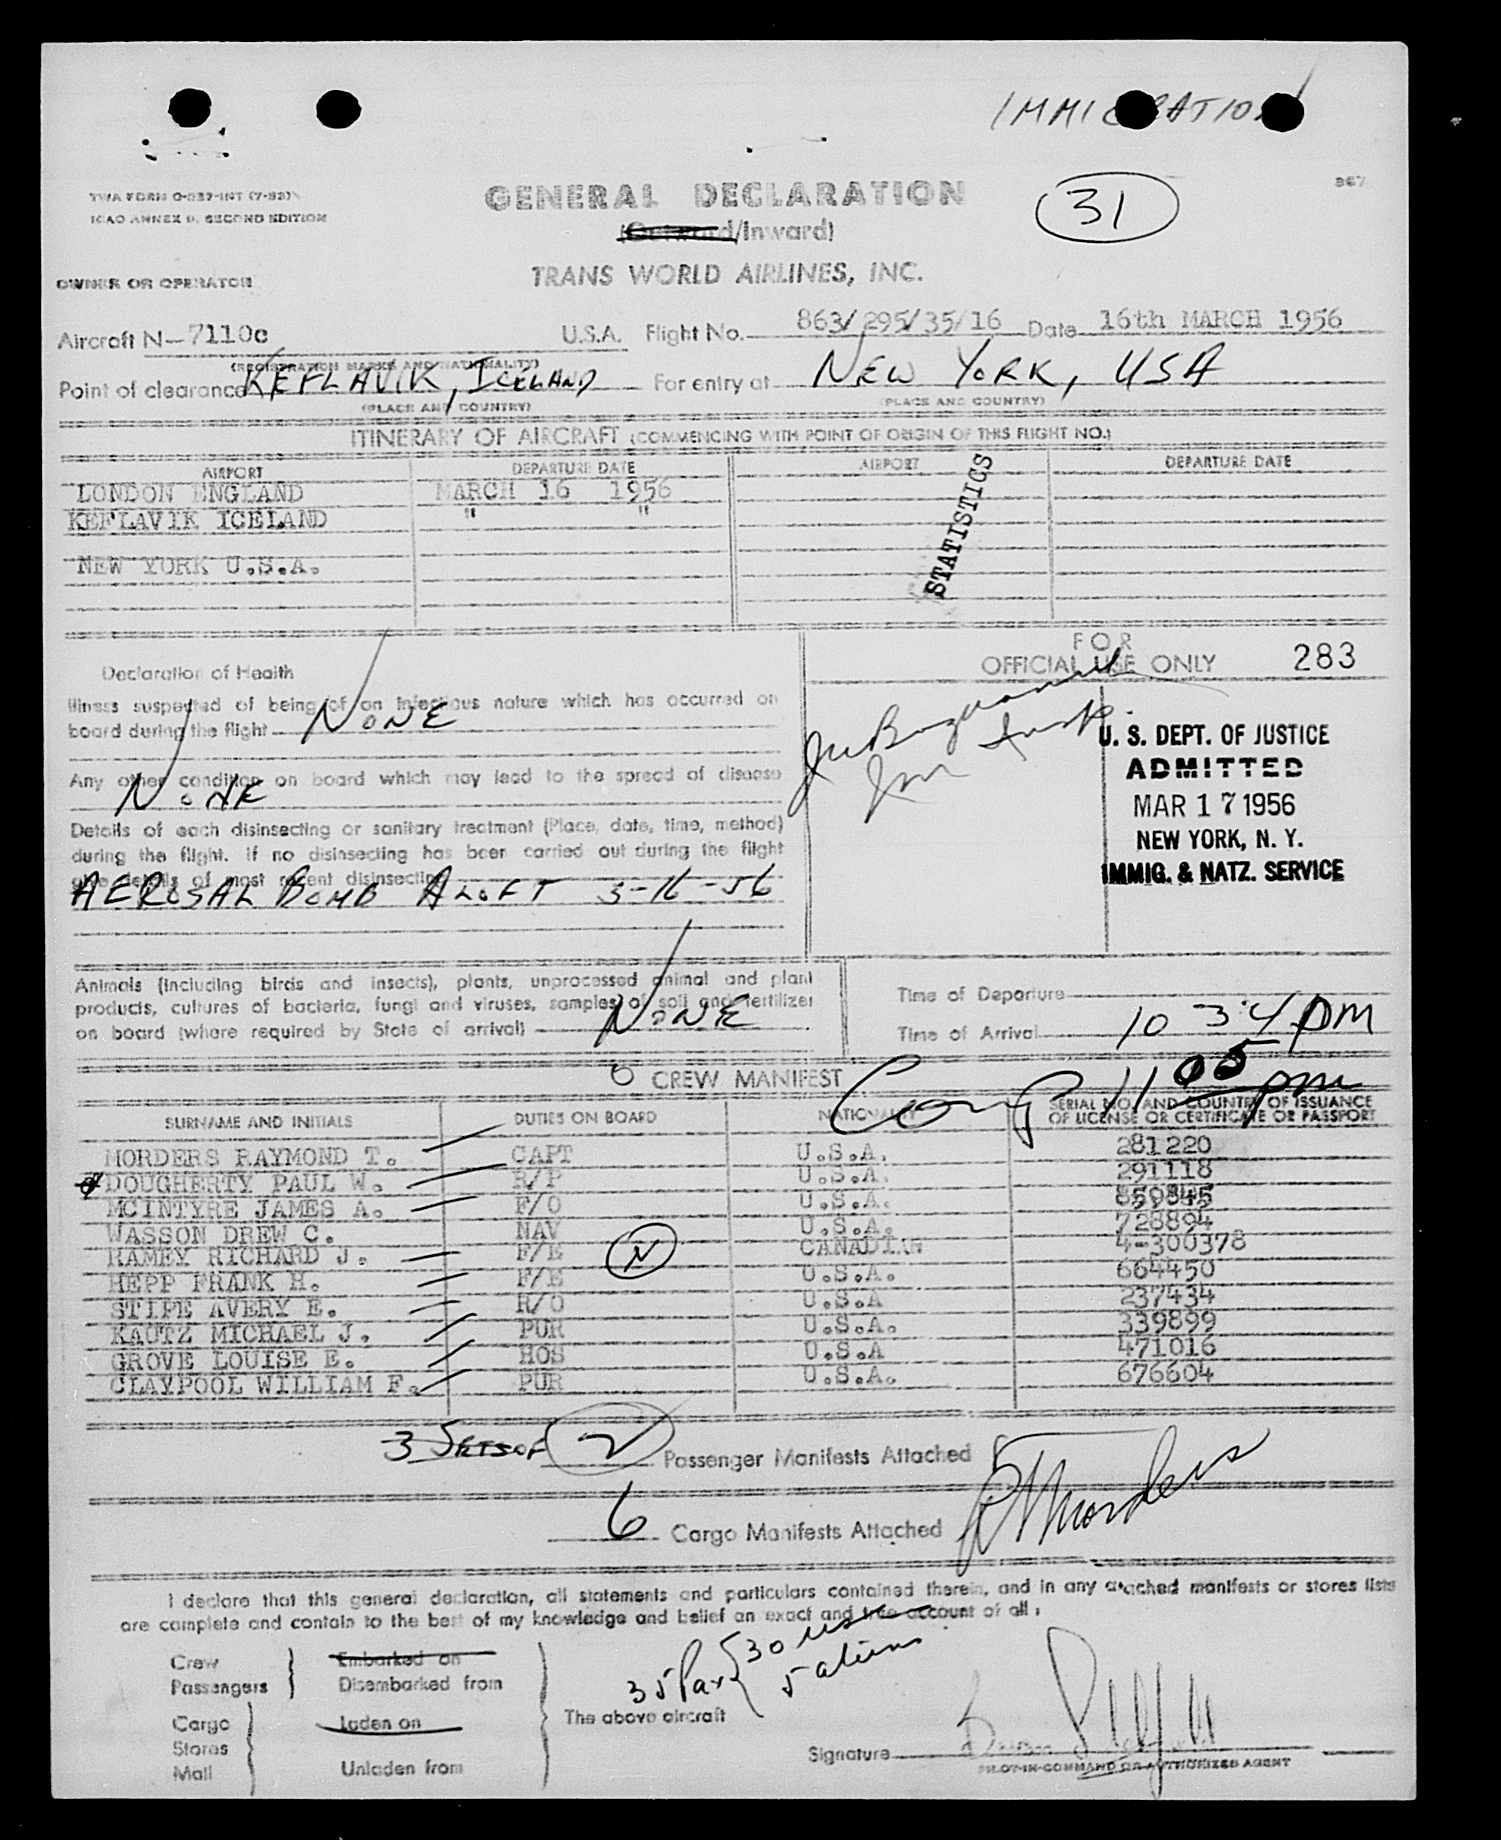 IMMIGRATION
TWA FORM O-037-INT (7-53)
ICAO ANNEX 9, SECOND EDITION
GENERAL DECLARATION
(Outward/Inward)
31
367
OWNER OR OPERATOR
TRANS WORLD AIRLINES, INC.
Aircraft N-7110c U.S.A. Flight No. 863/295/35/16 Date 16th MARCH 1956
(REGISTRATION MARKS AND NATIONALITY)
Point of clearance KEFLAVIK, ICELAND For entry at NEW YORK, USA
(PLACE AND COUNTRY) (PLACE AND COUNTRY)
ITINERARY OF AIRCRAFT (COMMENCING WITH POINT OF ORIGIN OF THIS FLIGHT NO.)
AIRPORT DEPARTURE DATE AIRPORT DEPARTURE DATE
LONDON ENGLAND MARCH 16 1956
KEFLAVIK ICELAND " "
NEW YORK U.S.A.
STATISTICS
Declaration of Health
Illness suspected of being of an infectious nature which has occurred on
board during the flight NONE
Any other condition on board which may lead to the spread of disease
NONE
Details of each disinsecting or sanitary treatment (Place, date, time, method)
during the flight. If no disinsecting has been carried out during the flight
give details of most recent disinsecting
AEROSAL BOMB ALOFT 3-16-56
FOR
OFFICIAL USE ONLY 283
U. S. DEPT. OF JUSTICE
ADMITTED
MAR 17 1956
NEW YORK, N. Y.
IMMIG. & NATZ. SERVICE
Animals (including birds and insects), plants, unprocessed animal and plant
products, cultures of bacteria, fungi and viruses, samples of soil and fertilizer
on board (where required by State of arrival) NONE
Time of Departure
Time of Arrival 10 34 PM
Comp 11 05 pm
6 CREW MANIFEST
SURNAME AND INITIALS DUTIES ON BOARD NATIONALITY SERIAL NO. AND COUNTRY OF ISSUANCE
OF LICENSE OR CERTIFICATE OR PASSPORT
MORDERS RAYMOND T. CAPT U.S.A. 281220
DOUGHERTY PAUL W. R/P U.S.A. 291118
MCINTYRE JAMES A. F/O U.S.A. 859845
WASSON DREW C. NAV U.S.A. 728894
RAMEY RICHARD J. F/E N CANADIAN 4-300378
HEPP FRANK H. F/E U.S.A. 664450
STIPE AVERY E. R/O U.S.A 237434
KAUTZ MICHAEL J. PUR U.S.A. 339899
GROVE LOUISE E. HOS U.S.A 471016
CLAYPOOL WILLIAM F. PUR U.S.A. 676604
3 SETS OF 2 Passenger Manifests Attached
6 Cargo Manifests Attached
RTMorders
I declare that this general declaration, all statements and particulars contained therein, and in any attached manifests or stores lists
are complete and contain to the best of my knowledge and belief an exact and true account of all:
35 Pax { 30 us
5 aliens
Crew Embarked on
Passengers Disembarked from
Cargo Laden on The above aircraft
Stores
Mail Unladen from
Signature
PILOT-IN-COMMAND OR AUTHORIZED AGENT